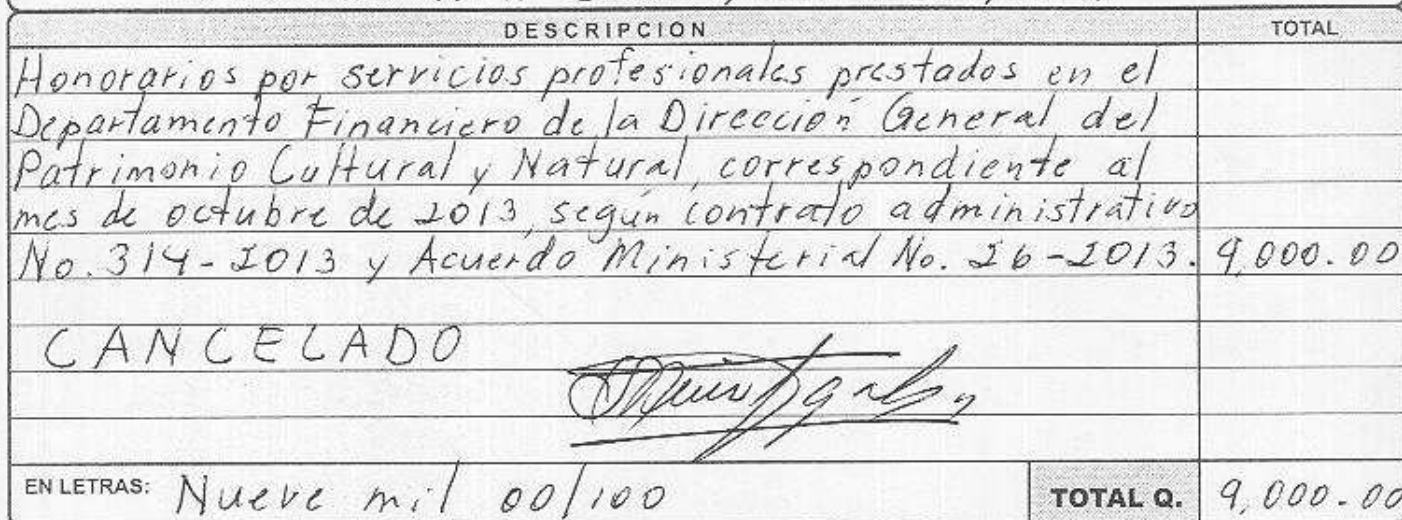 DESCRIPCION TOTAL
Honorarios por servicios profesionales prestados en el
Departamento Financiero de la Dirección General del
Patrimonio Cultural y Natural, correspondiente al
mes de octubre de 2013, según contrato administrativo
No. 314-2013 y Acuerdo Ministerial No. 26-2013. 9,000.00
CANCELADO
EN LETRAS: Nueve mil 00/100 TOTAL Q. 9,000.00